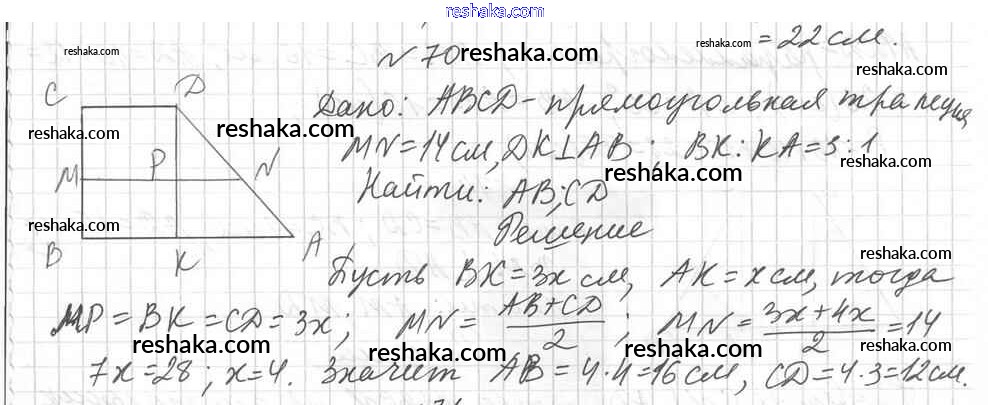 reshaka.com
= 22 см.
N 70
Дано: ABCD - прямоугольная трапеция
MN = 14 см, DK ⊥ AB; BK : KA = 3 : 1
Найти: AB; CD
Решение
C D
M P N
B K A
Пусть BK = 3x см, AK = x см, тогда
MP = BK = CD = 3x; MN = (AB + CD)/2; MN = (3x + 4x)/2 = 14
7x = 28; x = 4. Значит AB = 4 · 4 = 16 см, CD = 4 · 3 = 12 см.
reshaka.com
reshaka.com
reshaka.com
reshaka.com
reshaka.com
reshaka.com
reshaka.com
reshaka.com
reshaka.com
reshaka.com
reshaka.com
reshaka.com
reshaka.com
reshaka.com